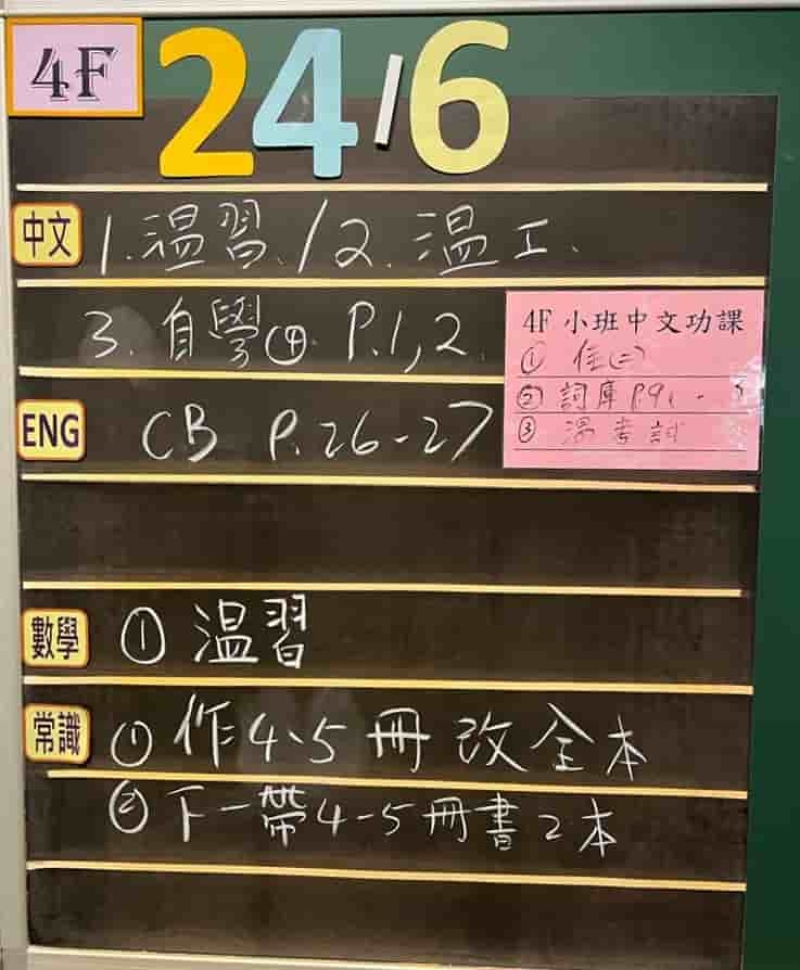 4F 24/6
中文 1. 溫習. / 2. 溫工.
3. 自學㊃. P.1,2.
4F 小班中文功課
①
② 詞庫 P.9
③ 溫考試
ENG CB P.26-27
數學 ① 溫習
常識 ① 作4、5冊改全本
② 下一帶4-5冊書2本